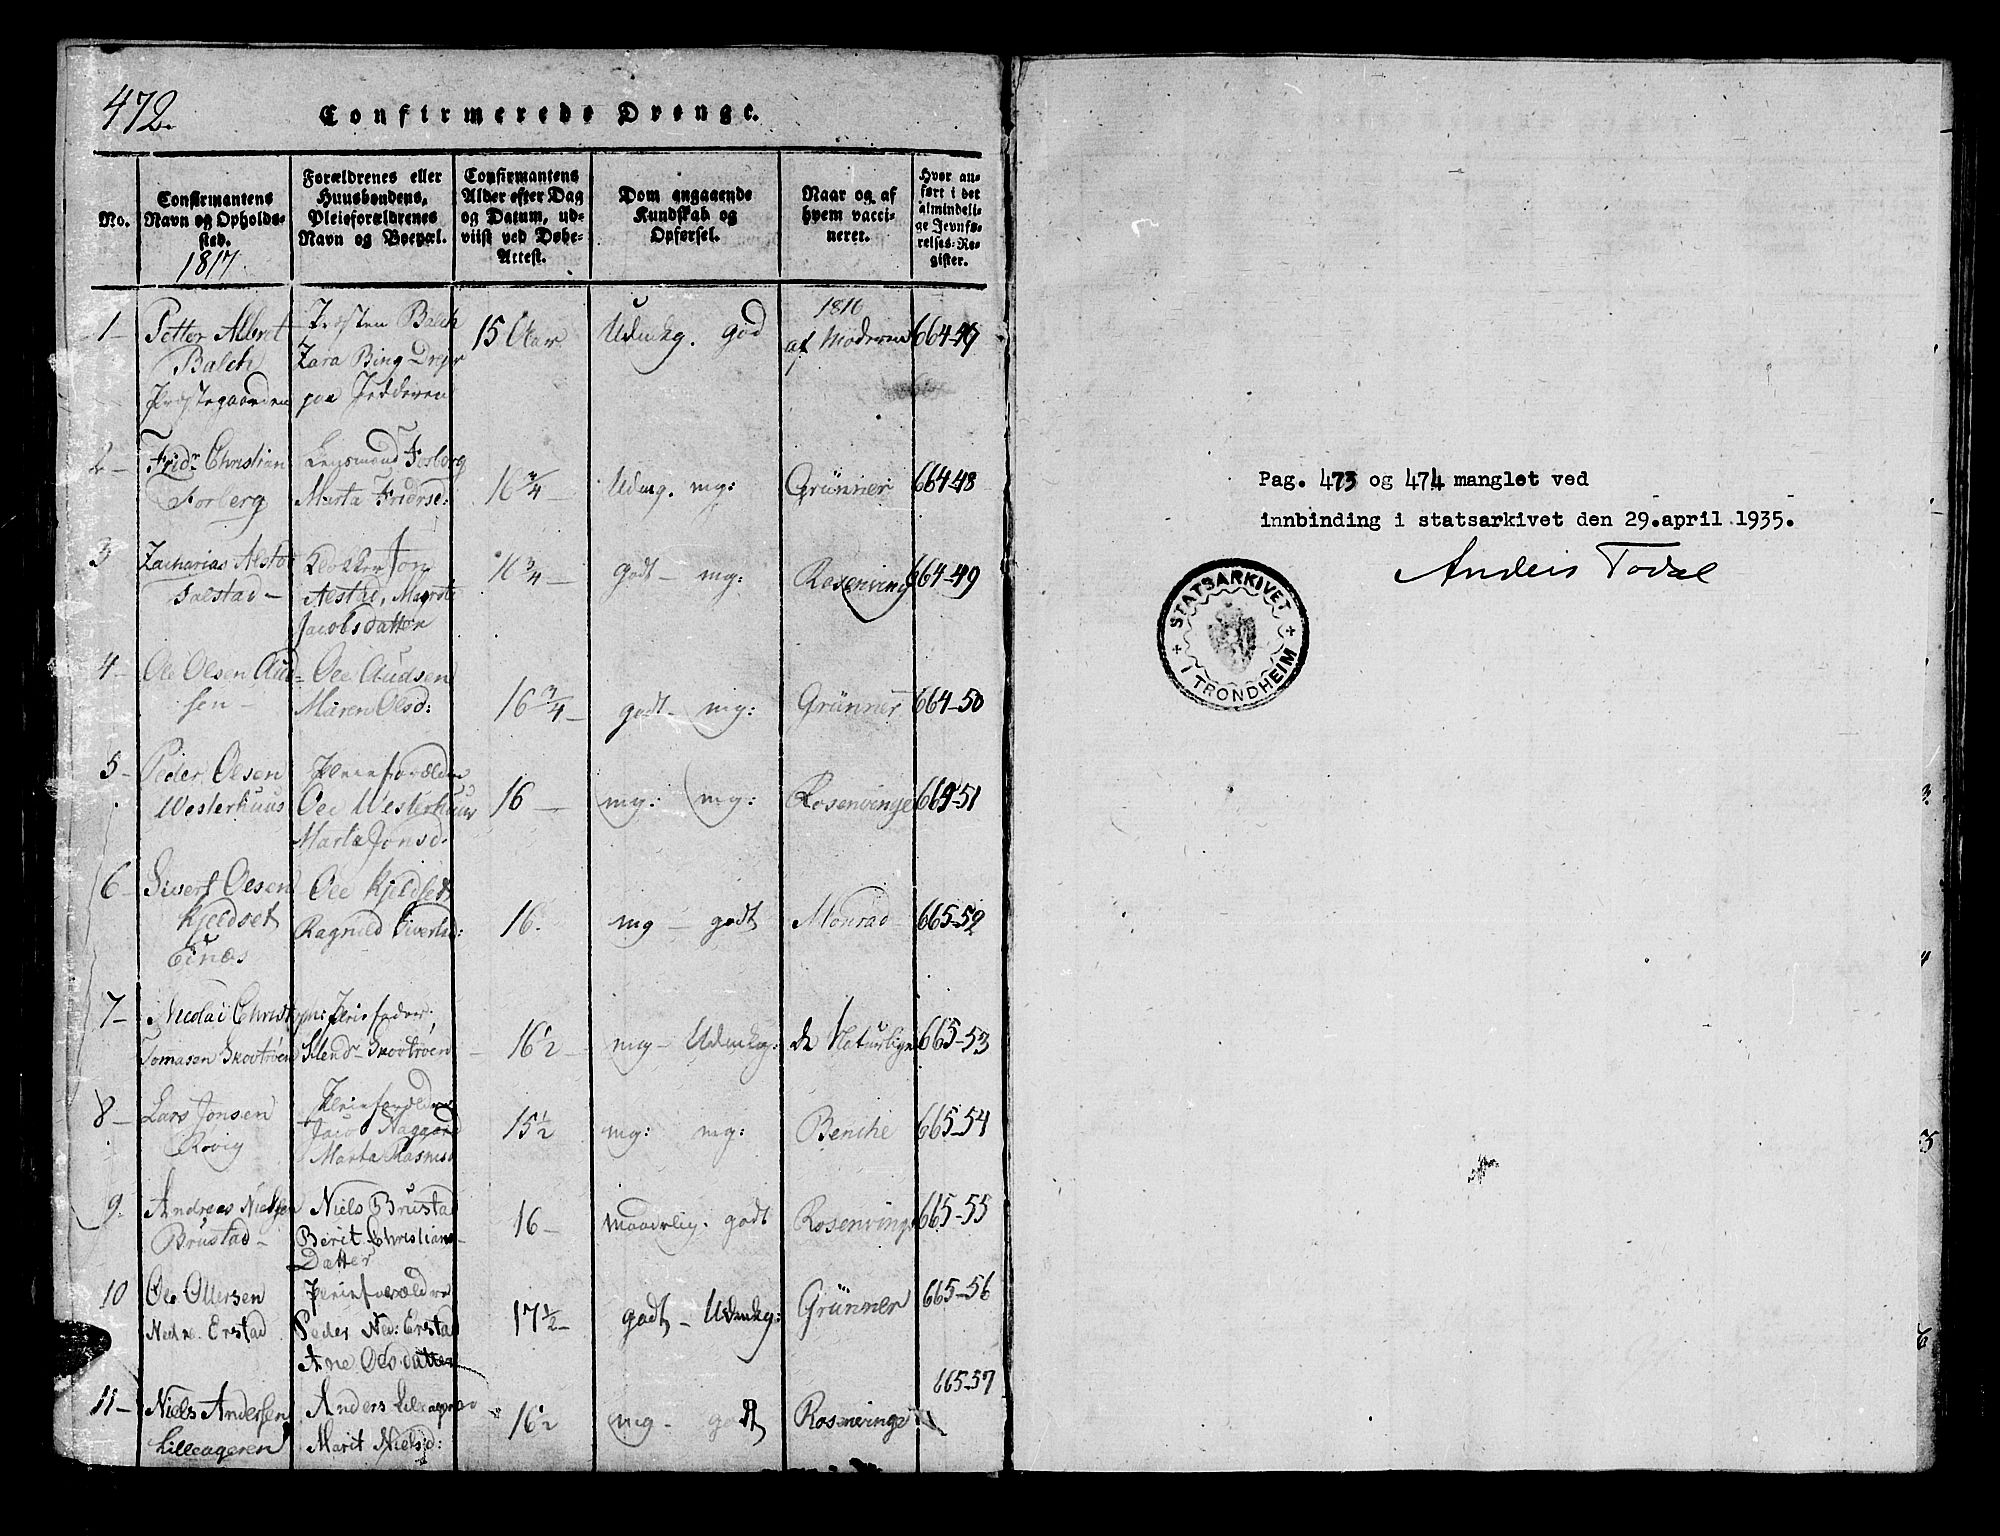 472.
Confirmerede Drenge.
No.
Confirmantens
Navn og Opholds-
sted.
1817.
Forældrenes eller
Huusbondens,
Pleieforældrenes
Navn og Boepæl.
Confirmantens
Alder efter Dag
og Datum, ud-
viist ved Døbe-
Attest.
Dom angaaende
Kundskab og
Opførsel.
Naar og af
hvem vacci-
neret.
Hvor an-
ført i det
almindeli-
ge Jevnfø-
relses-Re-
gister.
1-
Petter Albret
Balch
Præstegaarden
Præsten Balch
Zara Bing
paa Jedderen
15 Aar
Udmkg. god
1816
af Moderen
664-47
2-
Fridr Christian
Forberg
Lensmand Forborg
Marta Fridrsd:
16 3/4
Udmg. mg:
Grünner
664-48
3
Zacharias
Talstad-
Klokker Jon
Alstad, Magrete
Jacobsdatter
16 3/4-
godt- mg:
Rosenving
664-49
4-
Ole Olsen Aud-
sen-
Ole Audsen
Maren Olsd:
16 3/4-
godt- mg:
Grünner
664-50
5-
Peder Olsen
Westerhuus
Pleieforældre
Ole Westerhuus
Marta Jonsd.
16-
mg: mg:
Rosenvinge
664-51
6-
Sivert Olsen
Kjeldset
Eines
Ole Kjeldset
Ragnild Sivertsd:
16.
mg- godt
Monrad
665-52
7-
Nicolai Christ
Tomasen Skovtrøen
Pleiefader:
Skovtrøen
16 1/2-
mg- Udmkg:
de Naturlige
665-53
8-
Lars Jonsen
Rovig
Pleieforældre
Jacob Aagaard
Marta Rasmusd
15 1/2
mg: mg:
Benche
665-54
9.
Andreas Nielsen
Brustad-
Niels Brustad
Berit Christians-
Datter
16-
maadelig. godt
Rosenvinge
665-55
10
Ole Ollersen
Nedre. Erstad
Pleieforældre
Peder Ned: Erstad
Ane Olsdatter
17 1/2-
godt- Udmkg:
Grünner
665-56
11-
Niels Andersen
Lilleageren
Anders Lilleageren
Marit Nielsd:
16 1/2
mg- godt
Rosenvinge
665-57
Pag. 473 og 474 manglet ved
innbinding i statsarkivet den 29.april 1935.
Anders Todal
STATSARKIVET
I TRONDHEIM